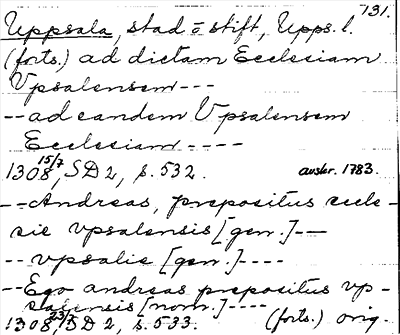 131.
Uppsala, stad o stift, Upps. l.
(forts.) ad dictam Ecclesiam
Vpsalensem ---
-- ad eandem Vpsalensem
Ecclesiam ----
1308 15/7, SD 2, s. 532. avskr. 1783.
-- Andreas, prepositus eccle-
sie vpsalensis [gen.] --
-- vpsalie [gen.] ----
-- Ego andreas prepositus vp-
salensis [nom.] ----
1308 23/7, SD 2, s. 533. (forts.) orig.